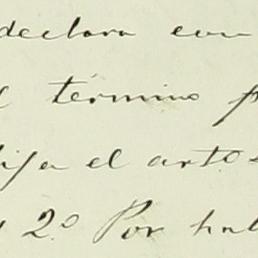 declara con
término
fija el arto
2.o Por hab